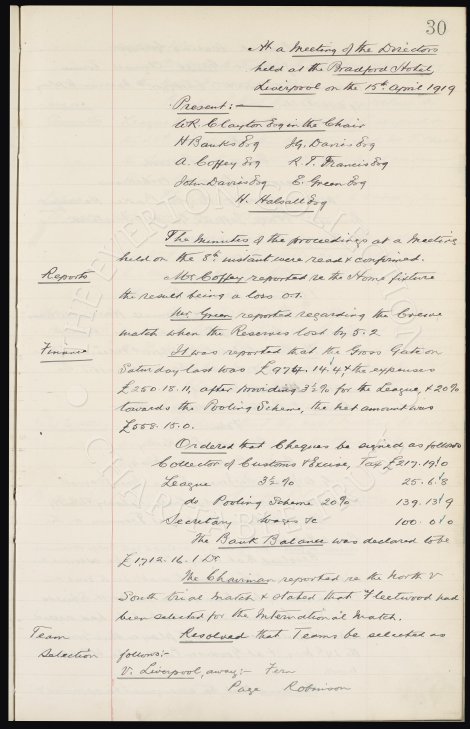 30
At a Meeting of the Directors
held at the Bradford Hotel,
Liverpool on the 15th April 1919
Present:-
W.R. Clayton Esq in the Chair
H Banks Esq J.G. Davis Esq
A. Coffey Esq R.T. Francis Esq
John Davis Esq E. Green Esq
H. Halsall Esq
The Minutes of the proceedings at a Meeting
held on the 8th instant were read & confirmed.
Reports Mr Coffey reported re the Home fixture
the result being a loss 0.1.
Mr Green reported regarding the Crewe
match when the Reserves lost by 5.2
Finance It was reported that the Gross Gate on
Saturday last was £974.14.4, & the expenses
£250.18.11, after providing 3½% for the League, & 20%
towards the Pooling Scheme, the net amount was
£558.15.0.
Ordered that Cheques be signed as follows
Collector of Customs & Excise, Tax £217.19.0
League 3½% 25.6.8
do Pooling Scheme 20% 139.13.9
Secretary Wages &c 100.0.0
The Bank Balance was declared to be
£1712.16.1 Dr
The Chairman reported re the North v
South trial match & stated that Fleetwood had
been selected for the International Match.
Team Resolved that Teams be selected as
Selection follows:-
V. Liverpool, away:- Fern
Page Robinson